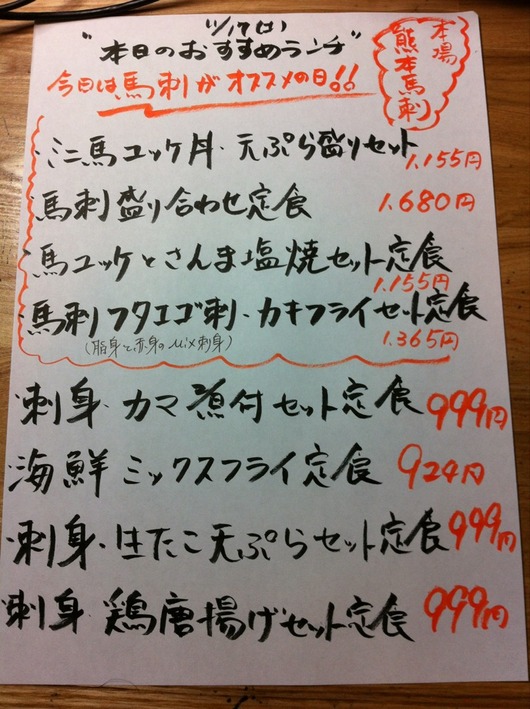 11/17(土)
"本日のおすすめランチ"
今日は馬刺がオススメの日!!
本場
熊本馬刺
・ミニ馬ユッケ丼・天ぷら盛りセット
1.155円
・馬刺盛り合わせ定食 1.680円
・馬ユッケとさんま塩焼セット定食
1.155円
・馬刺フタエゴ刺・カキフライセット定食
(脂身と赤身のMix刺身) 1.365円
・刺身・カマ煮付セット定食 999円
・海鮮ミックスフライ定食 924円
・刺身・生たこ天ぷらセット定食 999円
・刺身・鶏唐揚げセット定食 999円